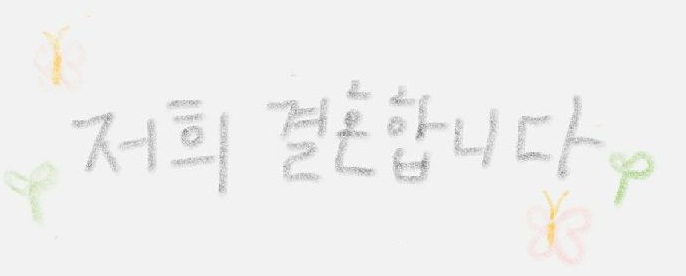 저희 결혼합니다